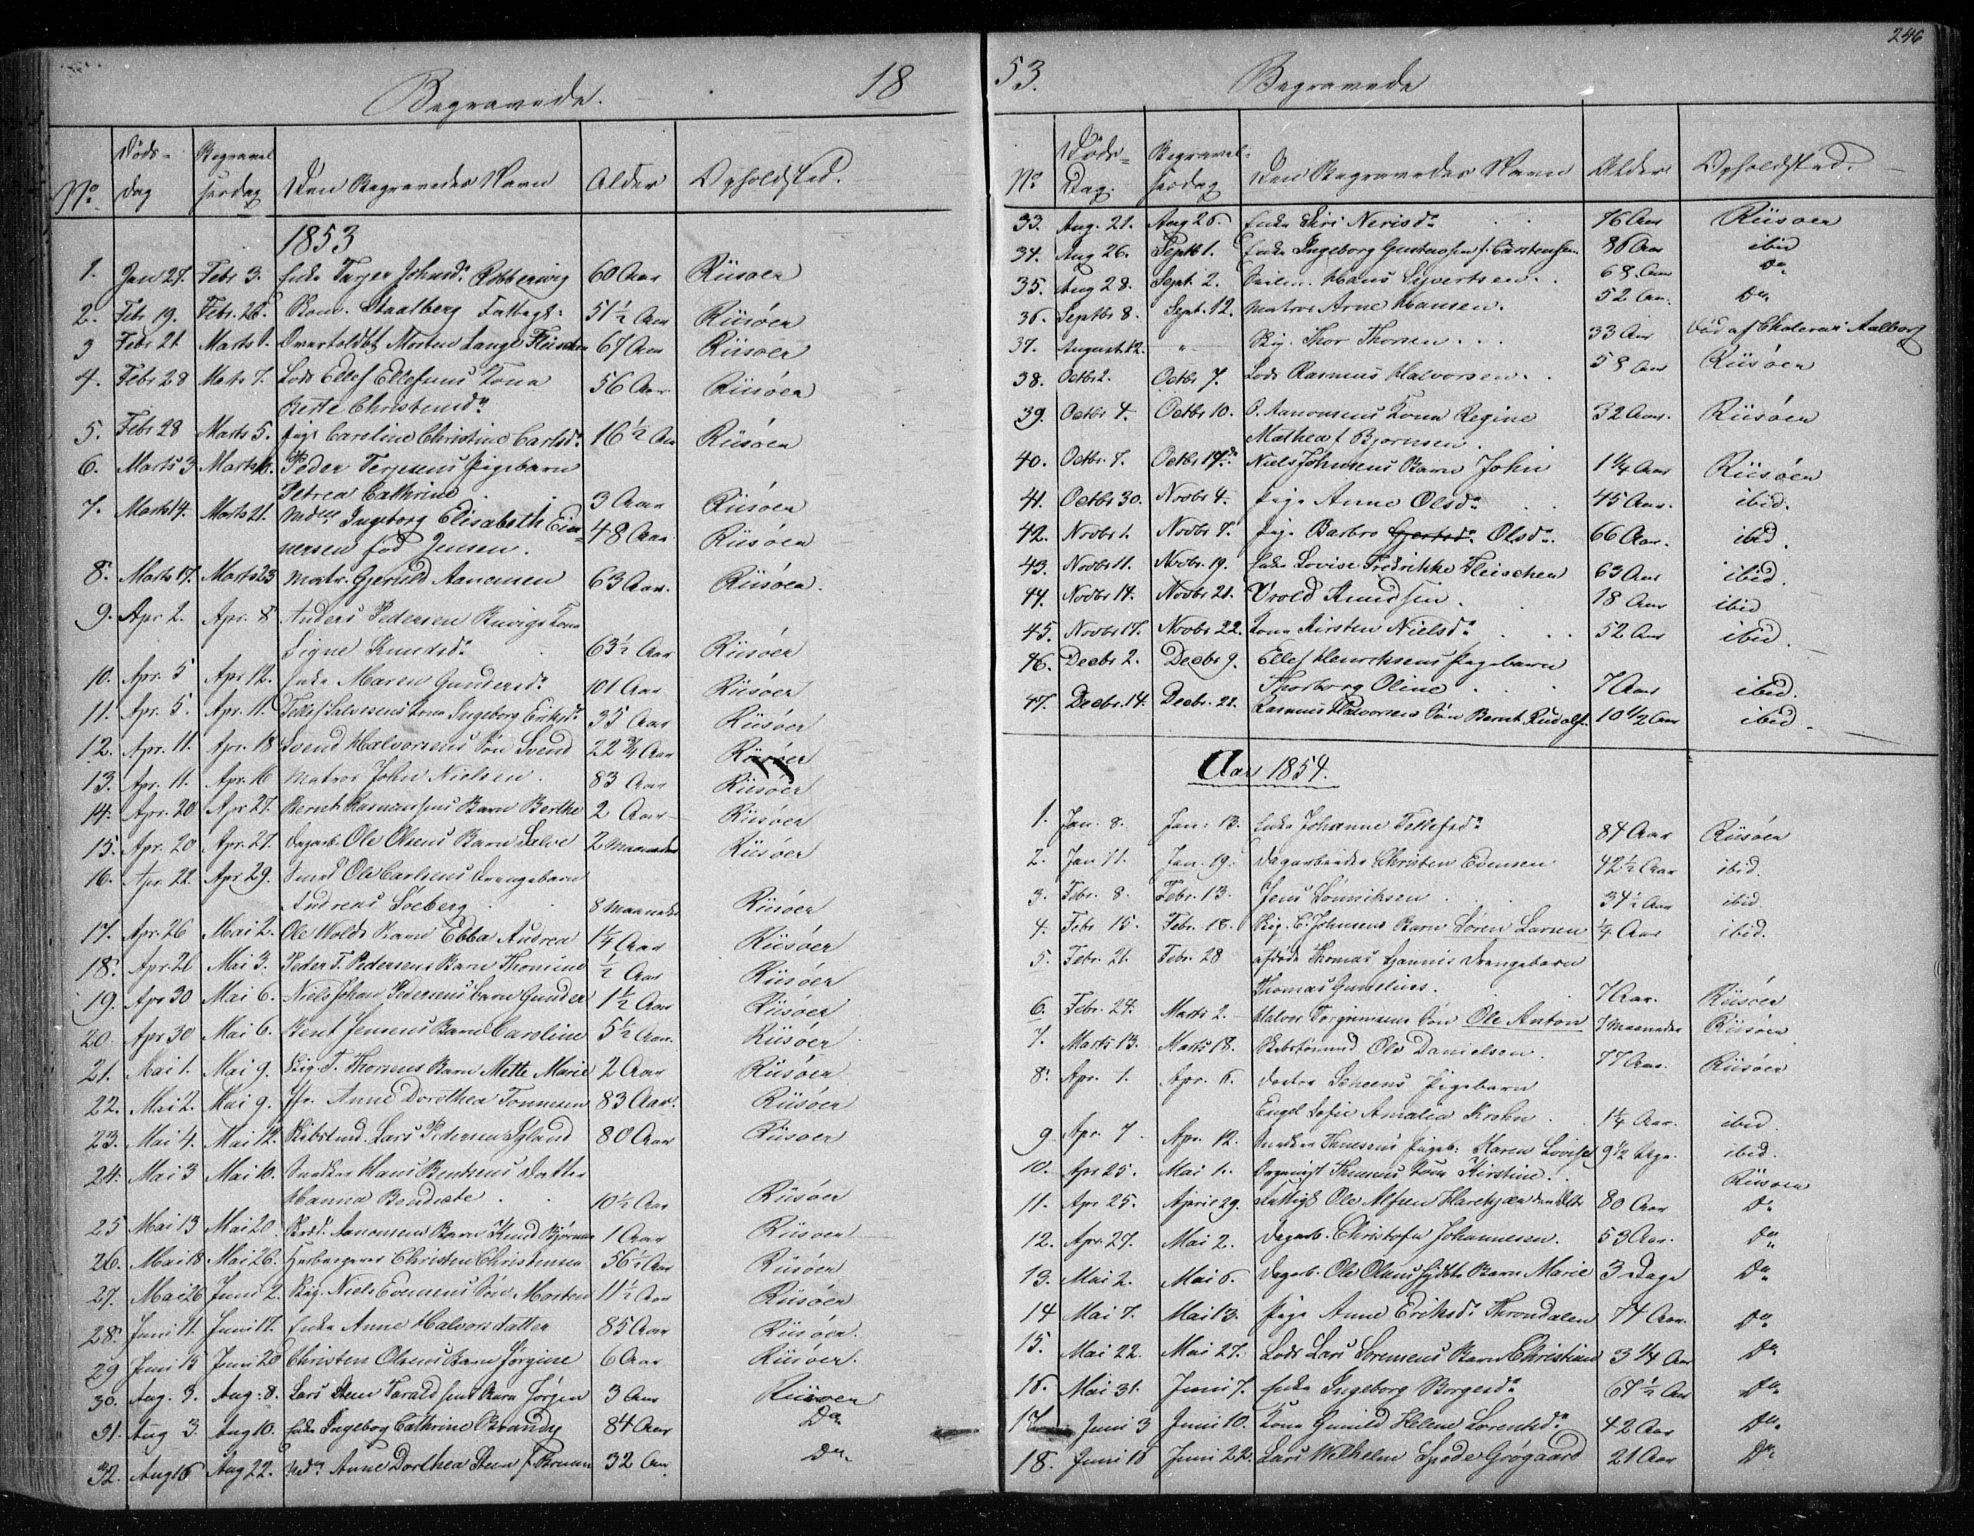 246
Begravede. 18
No Døds-dag Begravelsesdag Den Begravedes Navn Alder Opholdsted.
1853
1. Jan 27. Febr 3. Enke Johnsd. 60 Aar Riisøer
2. Febr 19. Febr. 26. Staalberg Fattigl: 51½ Aar Riisøer
3 Febr 21 Marts 1. Morten Lange Fleischer 67 Aar Riisøer
4. Febr 28 Marts 7. Lods Ellef Ellefsens Kona
Berte Christensd. 56 Aar Riisøer
5. Febr 28 Marts 5. Pige Caroline Christine Carlsd. 16½ Aar Riisøer
6. Marts 3 Marts Peder Terjesens Pigebarn
Petrea Cathrine 3 Aar Riisøer
7. Marts 14. Marts 21. Ingeborg Elisabeth Ei-
nersen fød Jensen. 48 Aar Riisøer
8. Marts 17. Marts 23 Matr. Gjeruld Aanonsen 63 Aar. Riisøer.
9. Apr 2. Apr. 8 Anders Pedersen Kona
Signe Knudsd. 63½ Aar Riisøer
10. Apr. 5 Apr 12. Enke Maren Gundersd. 101 Aar Riisøer
11. Apr. 5. Apr. 11. Kona Ingeborg Eriksd. 35 Aar Riisøer
12. Apr. 11. Apr. 18 Svend Halvorsens Søn Svend 22¾ Aar Riisøer
13. Apr. 11. Apr. 16 Matros John Nielsen. 83 Aar Riisøer
14. Apr. 20 Apr 27. Bernt Barn Berthe 2 Aar Riisøer
15. Apr. 20 Apr. 27. Dagarb. Ole Olsens Barn Salve 2 Maaneder Riisøer
16. Apr. 22. Apr 29. Smed Ole Carlsens Drengebarn
Andreas Søeberg 8 Maaneder Riisøer
17. Apr. 26 Mai 2. Ole Wolds Barn Ebba Andrea 1¼ Aar Riisøer
18. Apr. 26 Mai 3. Peder T. Pedersens Barn Thomine ½ Aar Riisøer
19. Apr 30 Mai 6. Niels Johan Pedersens barn Gunder 1½ Aar Riisøer
20. Apr 30 Mai 6. Bent Jensens Barn Caroline 5½ Aar. Riisøer
21. Mai 1. Mai 9. T. Thorsens Barn Mette Marie 2 Aar Riisøer
22. Mai 2. Mai 9. Anne Dorothea Tønnesen 83 Aar. Riisøer
23. Mai 4. Mai 12. Lars Pedersen 80 Aar Riisøer
24. Mai 3 Mai 10. Snedker Hans Bentsens Datter
Hanna Bendicte 10½ Aar Riisøer
25 Mai 13 Mai 20. Aanonsens Barn Knud Bjørn 1 Aar Riisøer
26. Mai 18 Mai 26. Christen Christensen 56½ Aar Riisøer
27. Mai 26 Juni 2. Niels Evensens Søn Morten 11½ Aar Riisøer
28. Juni 11. Juni 17. Enke Anne Halvorsdatter 85 Aar Riisøer.
29 Juni 15 Juni 20 Christen Olsens Barn Jørgine 6 Aar Riisøer.
30. Aug. 3. Aug: 8. Lars Steen Taraldsens Barn Jørgen 3 Aar Riisøer
31. Aug 3. Aug 10. Enke Ingeborg Cathrine Brandt 84 Aar Do
32. Aug 16 Aug 22. Anne Dorthea Steen f. Bruun 32 Aar Do
53. Begravede
No Døds-Dag. Begravel-sesdag Den Begravedes Navn Alder Opholdsted.
33. Aug. 21. Aug 26. Enke Siri Nerisd. 76 Aar Riisøer
34. Aug 26. Septb 1. Enke Ingeborg Gustavsen f. Carstensen 86 Aar ibid
35. Aug 28. Sept. 2. Hans Syvertsen. 68. Aar Do
36. Septbr 8. Sept. 12. Matros Arne Hansen. 52 Aar. Do
37. August 12. - " - Thor Thorsen... 33 Aar Død af Cholera i Aalborg
38. Octbr 2. Octbr 7. Lods Rasmus Halvorsen. 58 Aar Riisøer
39. Octbr 4. Octbr 10. O. Aanonsens Kona Regine
Mathea f Bjørnsen. 32 Aar. Riisøer
40. Octbr. 7. Octbr 14. Niels Johnsens Barn John 1¼ Aar Riisøer
41. Octbr 30. Novbr 4. Pige Anne Olsd. 45 Aar. ibid.
42. Novbr 1. Novbr 7. Pige Barbro Gjertsd. Olsd. 66 Aar. ibid.
43. Novbr 11. Novbr. 19. Enke Lovise Fredrikke Fleischer 63 Aar ibid.
44. Novbr 14. Novbr 21. Vrold Knudsen. 18 Aar ibid
45. Novbr 17. Novbr 22. Kona Kirsten Nielsd. 52 Aar ibid.
46. Decbr 2. Decbr 9. Ellef Henriksens Pigebarn
Thorborg Oline 7 Aar ibid.
47. Decbr. 14. Decbr. 21. Rasmus Halvorsens Søn Bernt Rudolf. 10½ Aar ibid.
Aar 1854.
1. Jan. 8. Jan: 13. Enke Johanne Tellefsd. 84 Aar Riisøer
2. Jan 11. Jan. 19. Dagarbeider Christen Evensen 42½ Aar ibid.
3. Febr. 8. Febr. 13. Jens Sønniksen 34½ Aar ibid
4. Febr 15. Febr. 18. C. Johnsens Barn Søren Larsen ¼ Aar ibid.
5. Febr. 21. Febr. 28 afdøde Thomas Drengebarn
Thomas 7 Aar. Riisøer
6. Febr. 24. Marts 2. Halvor Torgrimsens Søn Ole Anton 7 Maaneder Riisøer
7. Marts 13. Marts 18. Ole Danielsen. 77 Aar. Riisøer
8. Apr. 1. Apr. 6. Doctor Scheens Pigebarn
Engel Sofie Amalia Krohn. 1¼ Aar. ibid.
9 Apr. 7. Apr. 12. Karen Lovise 9½ ibid.
10. Apr 25. Mai 1. Kona Kirstine. Riisøer
11. Apr 25. April 29. Fattigl. Ole 80 Aar Do
12. Apr. 27. Mai 2. Dagarb. Christofer Johannessen. 53 Aar. Do
13. Mai 2. Mai 6. Dagarb. Ole Olsens Barn Marie 3 Dage Do
14 Mai 7. Mai 13. Pige Anne Eriksd. Throndalen 74 Aar. Do
15. Mai 22. Mai 27. Lods Lars Sørensens Barn Christian 3¼ Aar Do
16. Mai 31. Juni 7. Enke Ingeborg Børgesd. 67½ Aar Do
17. Juni 3 Juni 10. Kona Gunild Helene Lorentsd. 42 Aar Do
18. Juni 16 Juni 22. Lars Wilhelm Spode Grøgaard 21 Aar Do